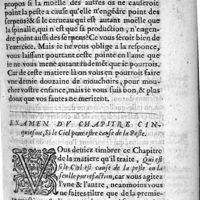 propos si la moëlle des autres os ne causeroit
point la peste à cause qu'elle n'engédre point de
serpens & si le cerueau qui est autant moëlle que
la spinalle, qui n'en est que sa production, n'en agen-
drent point aussi des serpens: Ce vous seroit bien de
l'exercice. Mais ie ne vous oblige à la response
vous laissant pourtant ceste pointe en l'ame que
ie ne veux monter autant de vous que de pourceaux
Car de ceste matiere là on vous en pourroit faire
vne demie douzaine de mouchoirs, pour moucher
vostre enfance, mais ie vous suis bon, & plus
doux que vos fautes ne meritent.
EXAMEN DV CHAPITRE CIN-
quiesme, Si le Ciel peut estre cause de la Peste.
VOus deuiez timbrer ce Chapitre
de la matiere qu'il traite, Qui est
si le Ciel est cause de la peste ou la
seulle putrefaction, car vous agitez
l'vne & l'autre, neantmoins vous
ne faites tiltre que de la premiere